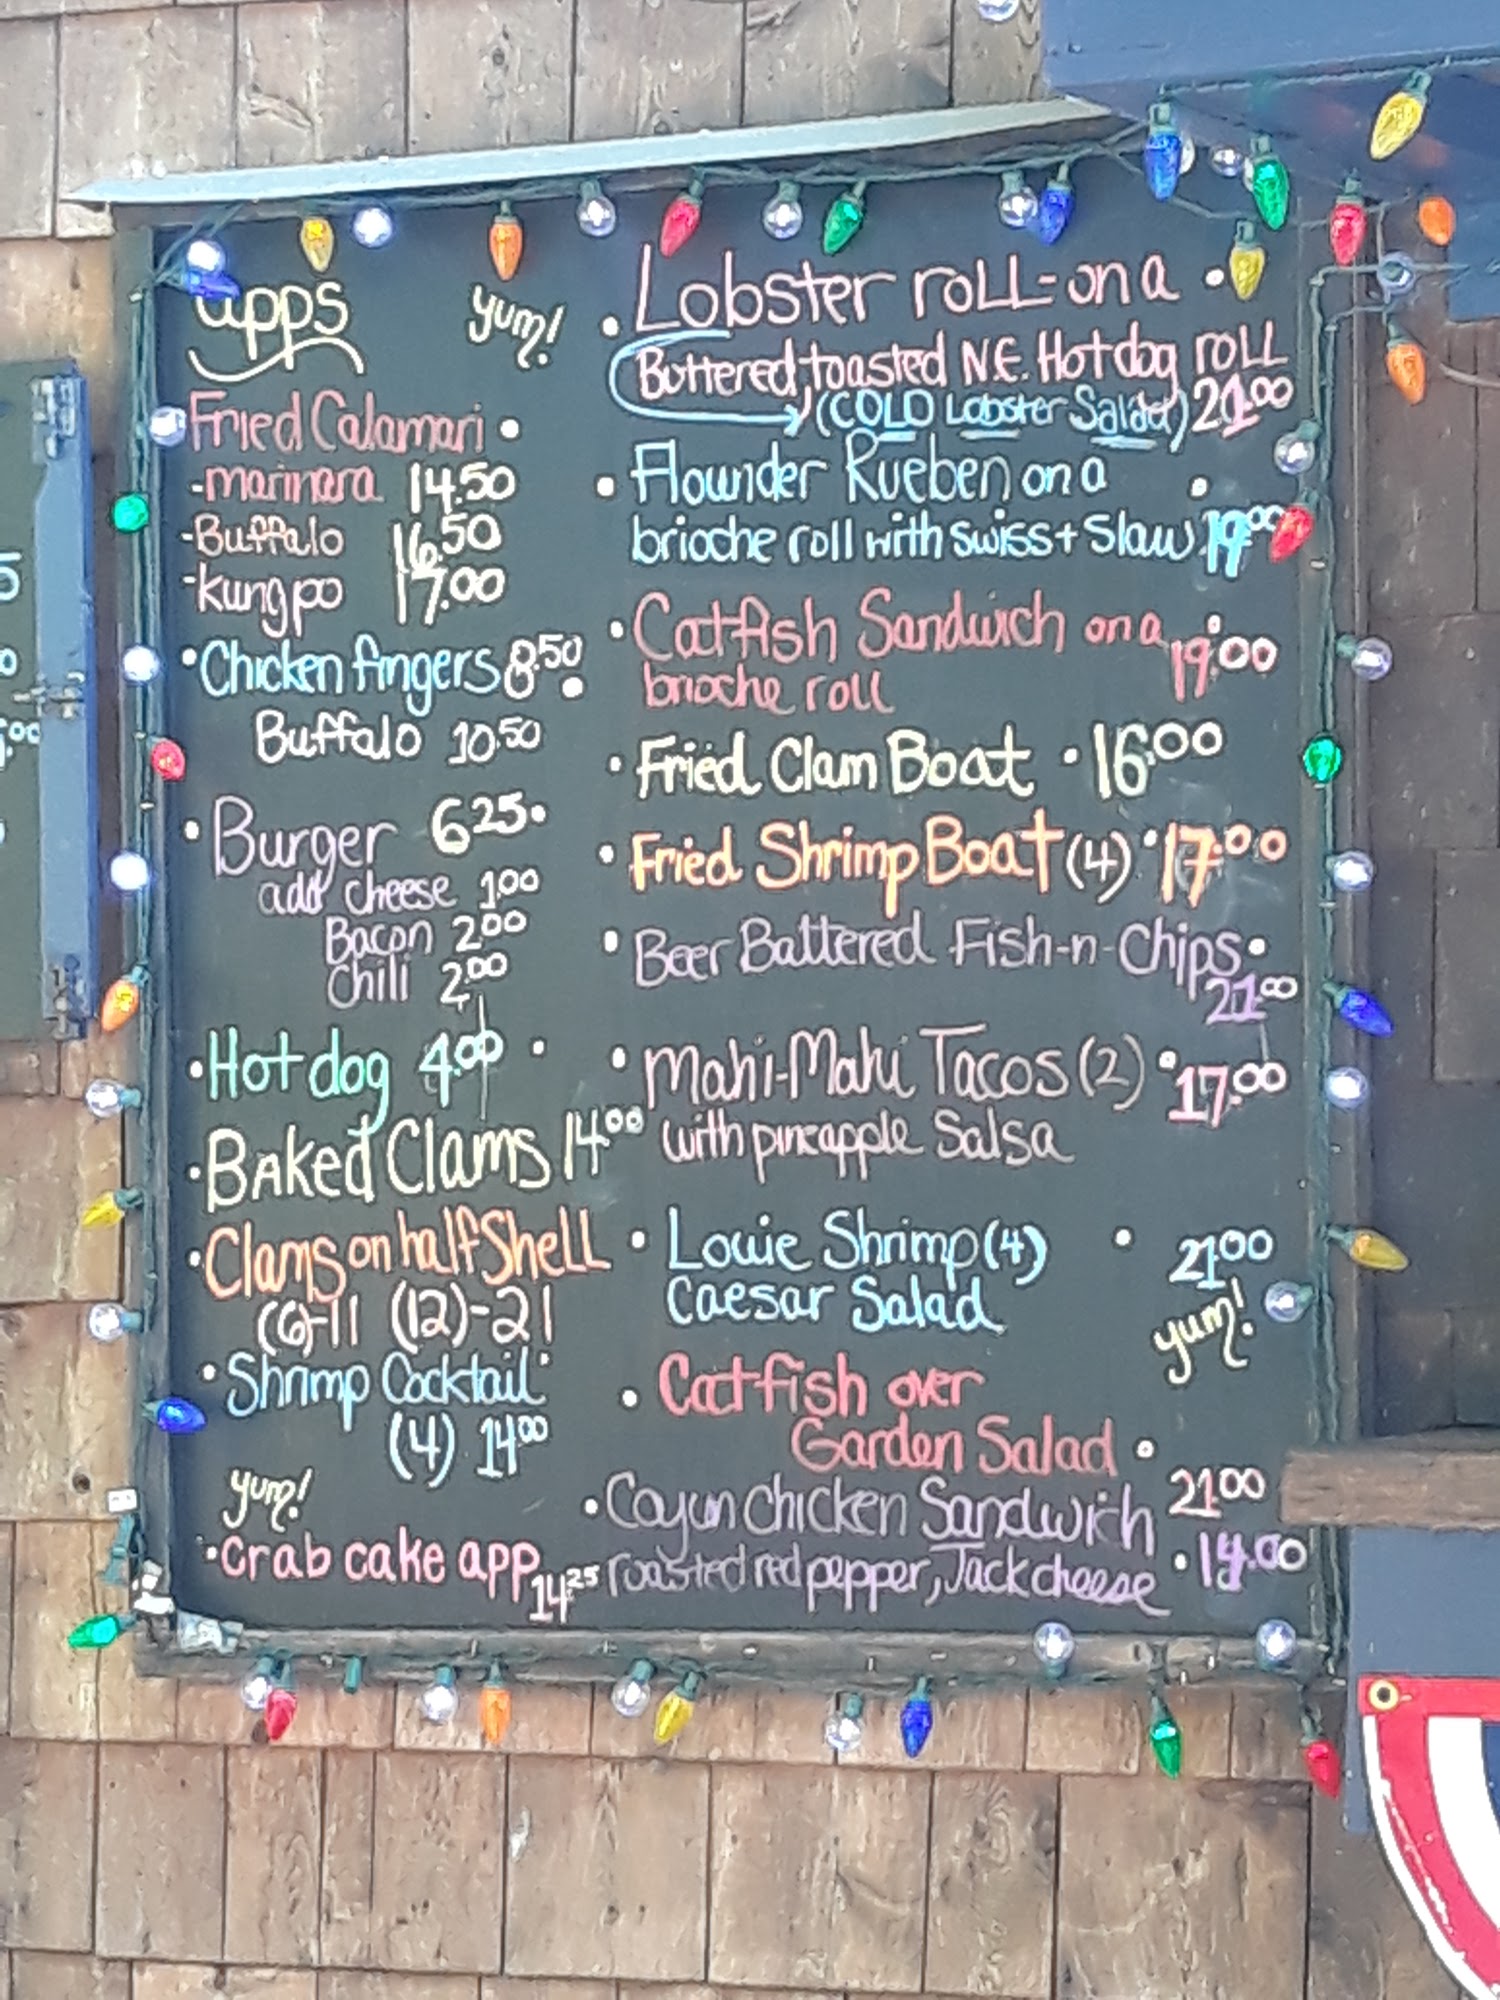 apps
yum!
Fried Calamari
-marinara 14.50
-Buffalo 16.50
-kung po 17.00
Chicken fingers 8.50
Buffalo 10.50
Burger 6.25
add cheese 1.00
Bacon 2.00
Chili 2.00
Hot dog 4.00
Baked Clams 14.00
Clams on half Shell
(6)-11 (12)-21
Shrimp Cocktail
(4) 14.00
yum!
Crab cake app 14.25
Lobster roll-on a
Buttered, toasted N.E. Hot dog roll
(COLD Lobster Salad) 21.00
Flounder Rueben on a
brioche roll with swiss + Slaw 19.00
Catfish Sandwich on a 19.00
brioche roll
Fried Clam Boat 16.00
Fried Shrimp Boat (4) 17.00
Beer Battered Fish-n-Chips
21.00
Mahi-Mahi Tacos (2) 17.00
with pineapple Salsa
Louie Shrimp (4) 21.00
Caesar Salad
yum!
Catfish over
Garden Salad
21.00
Cajun Chicken Sandwich
roasted red pepper, Jack cheese